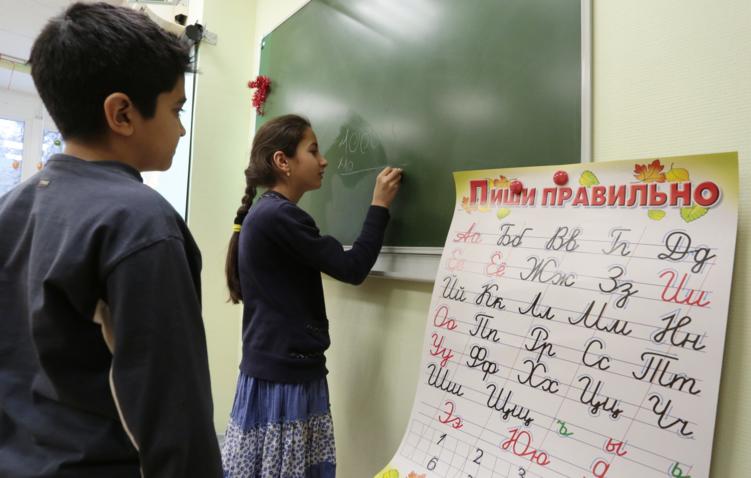 Пиши правильно
Аа Бб Вв Гг Дд
Ее Ёё Жж Зз Ии
Йй Кк Лл Мм Нн
Оо Пп Рр Сс Тт
Уу Фф Хх Цц Чч
Шш Щщ ъ ы ь
Ээ Юю Я
1 2 3
6